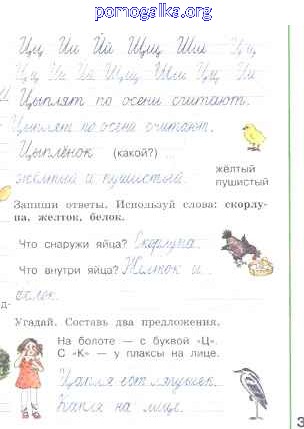 pomogalka.org
Цц Ии Йй Щщ Шш Цц
Цц Ии Йй Щщ Шш Цц Ии
Цыплят по осени считают.
Цыплят по осени считают.
Цыплёнок (какой?)
жёлтый и пушистый.
жёлтый
пушистый
Запиши ответы. Используй слова: скорлу-
па, желток, белок.
Что снаружи яйца? Скорлупа.
Что внутри яйца? Желток и
белок.
д-
Угадай. Составь два предложения.
На болоте — с буквой «Ц».
С «К» — у плаксы на лице.
Цапля ест лягушек.
Капля на лице.
3